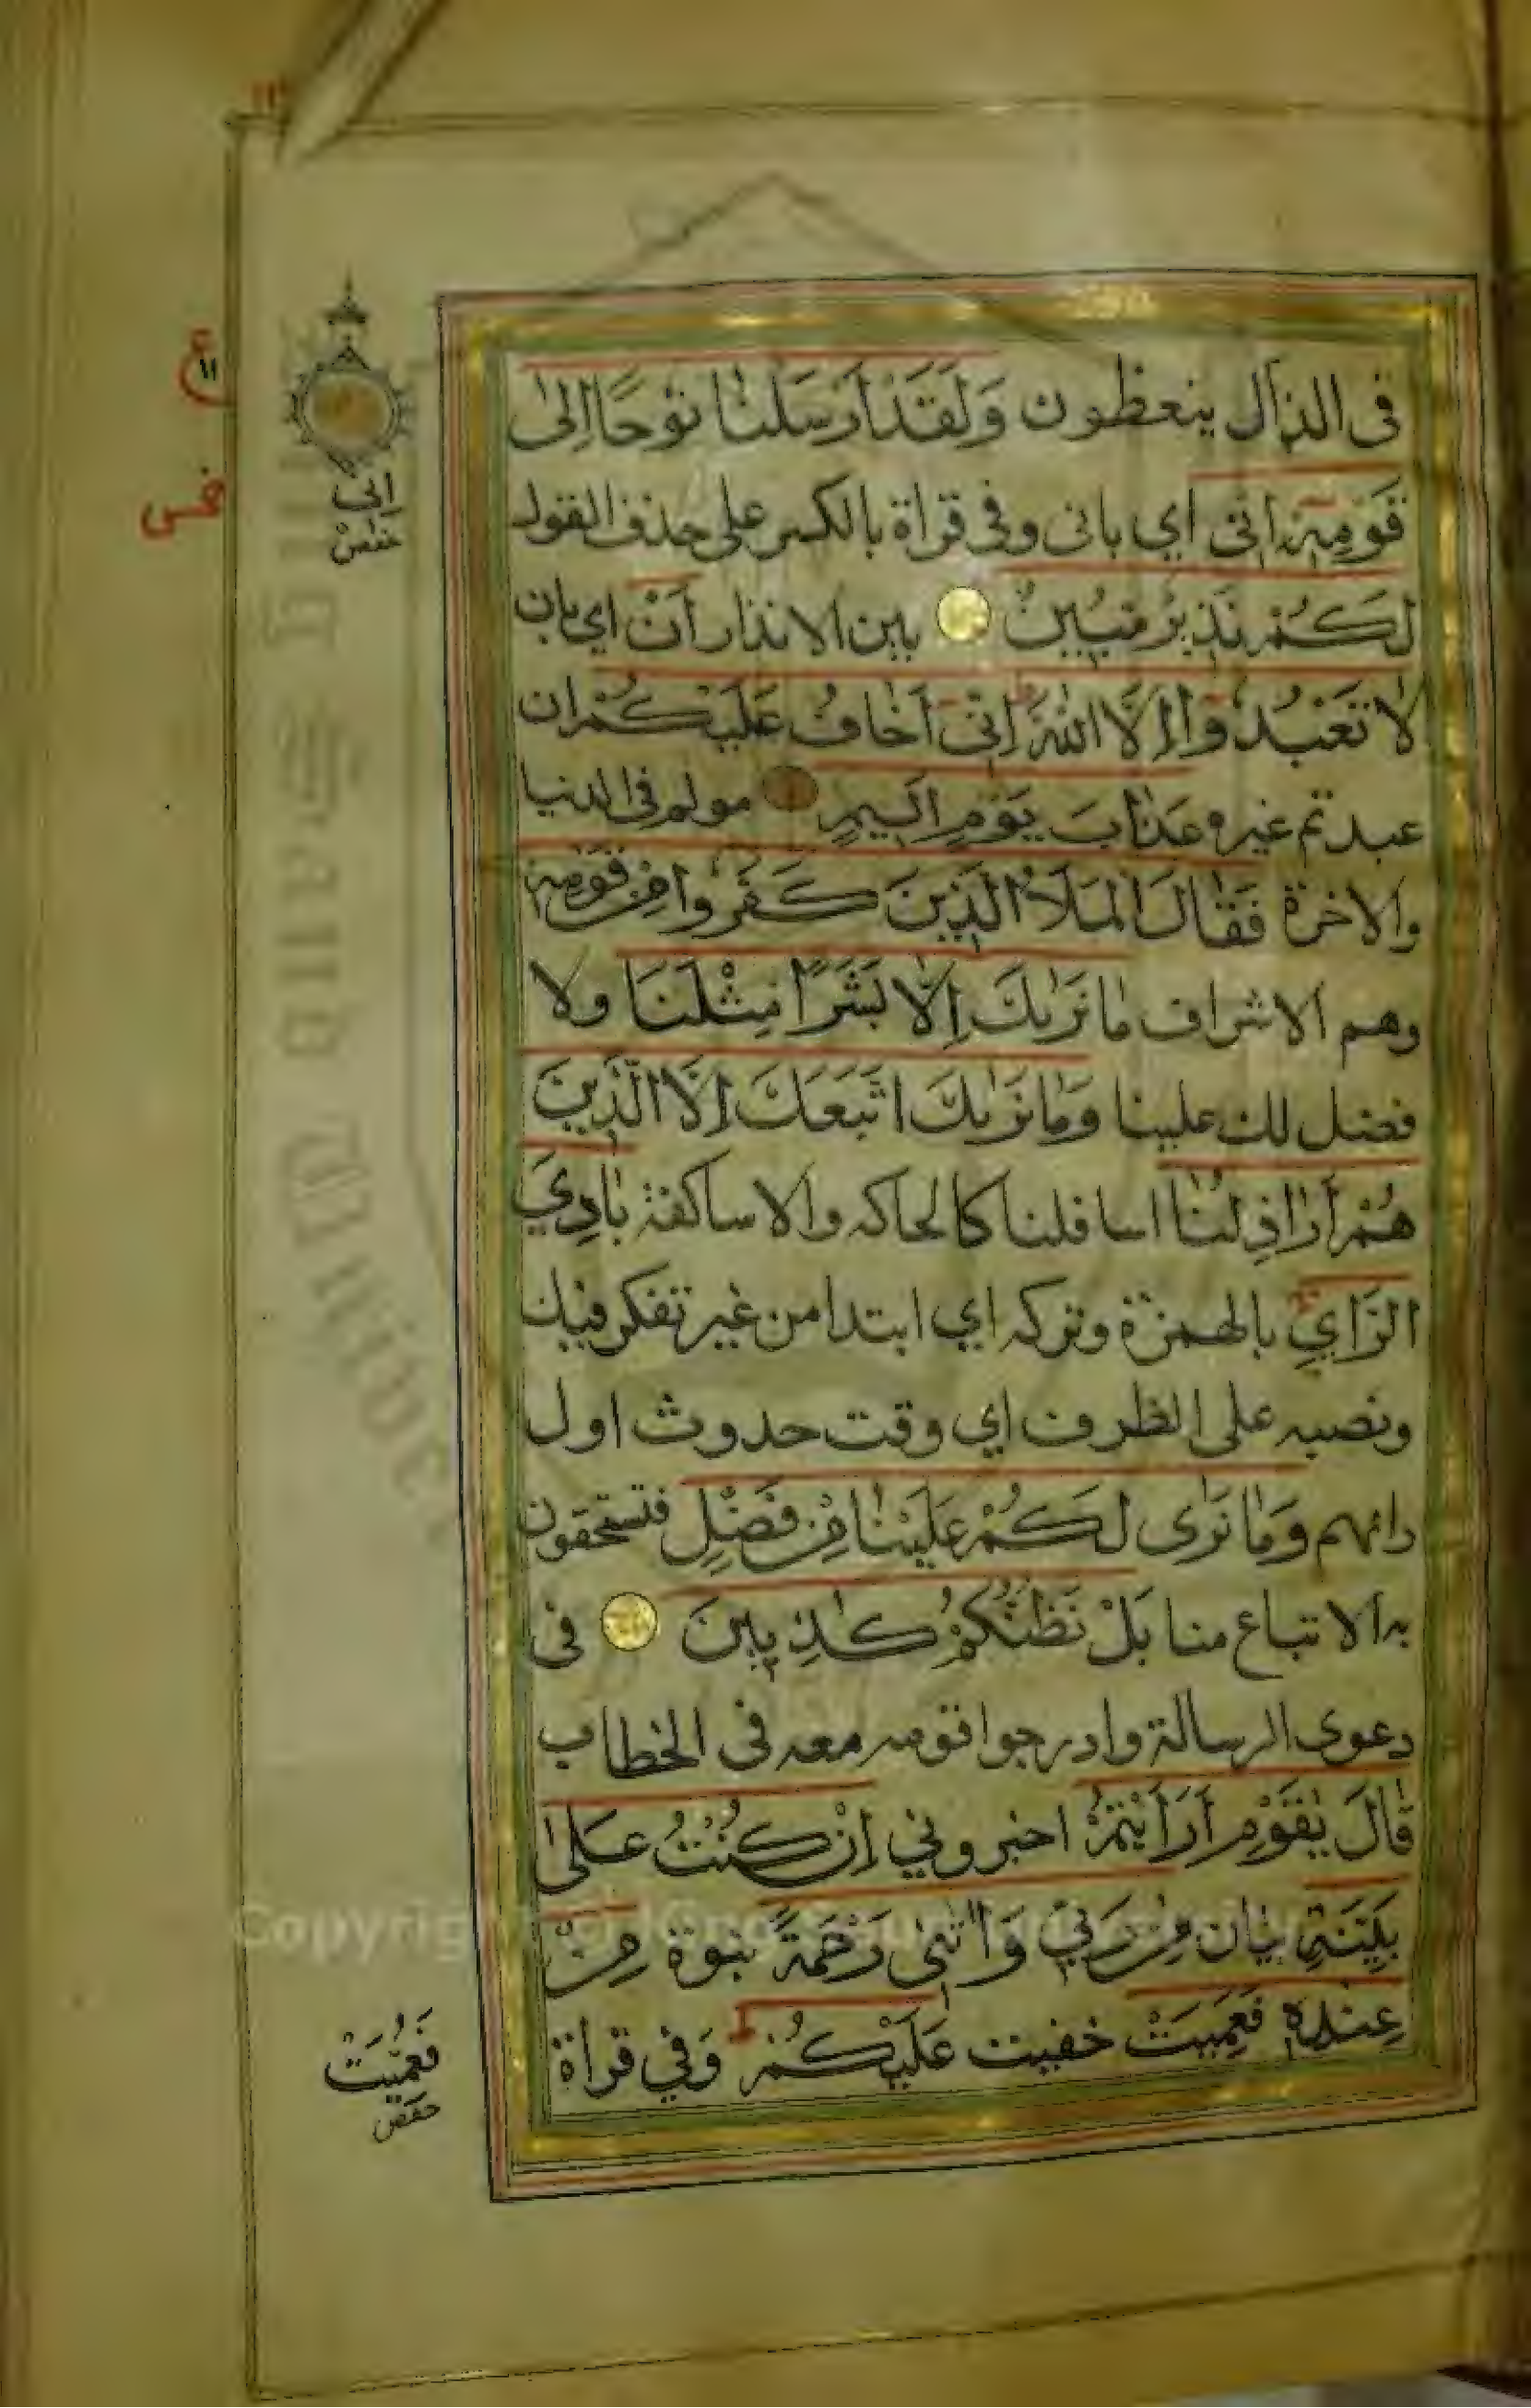 فى الذال يتعظون وَلَقَدْ اَرْسَلْنَا نُوْحًا اِلىٰ
قَوْمِهٖ اَنّى اي بانى وفى قراة بالكسر على حذف القول
لَكُمْ نَذِيْرٌ مُبِيْنٌ بين الانذار اَنْ اي بان
لَا تَعْبُدُوْا اِلَّا اللّٰهَ اِنّى اَخَافُ عَلَيْكُمْ ان
عبدتم غيره عَذَابَ يَوْمٍ اَلِيْمٍ مولم فى الدنيا
والاخرة فَقَالَ الْمَلَاُ الَّذِيْنَ كَفَرُوْا مِنْ قَوْمِهٖ
وهم الاشراف مَا نَرٰىكَ اِلَّا بَشَرًا مِثْلَنَا ولا
فضل لك علينا وَمَا نَرٰىكَ اتَّبَعَكَ اِلَّا الَّذِيْنَ
هُمْ اَرَاذِلُنَا اسافلنا كالحاكه والاساكفة بَادِيَ
الرَّاْيِ بالهمزة وتركه اي ابتدا من غير تفكر فيك
ونصبه على الظرف اي وقت حدوث اول
رائهم وَمَا نَرٰى لَكُمْ عَلَيْنَا مِنْ فَضْلٍ فتستحقون
به الاتباع منا بَلْ نَظُنُّكُمْ كٰذِبِيْنَ فى
دعوى الرسالة وادرجوا قومه معه فى الخطاب
قَالَ يٰقَوْمِ اَرَاَيْتُمْ اخبروني اِنْ كُنْتُ عَلىٰ
بَيِّنَةٍ بيان مِنْ رَبّي وَاٰتٰىنى رَحْمَةً نبوة مِنْ
عِنْدِهٖ فَعَمِيَتْ خفيت عَلَيْكُمْ وَفي قراة
١١
اِنّي
حفص
فَعُمِّيَتْ
حفص
Copyright © King Saud University